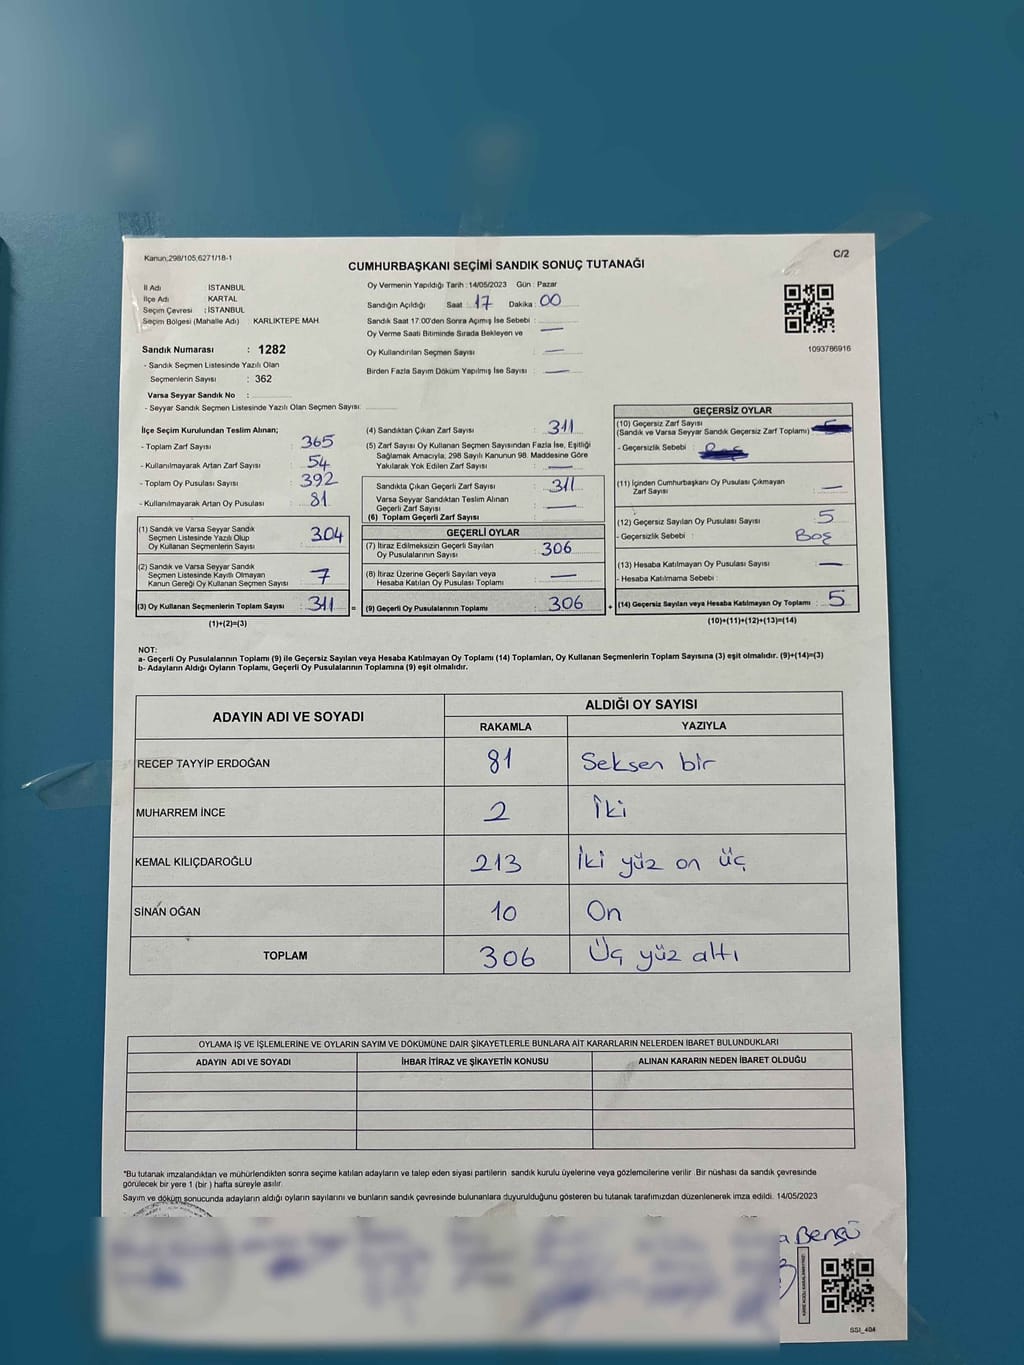 Kanun;298/105,6271/18-1
C/2
CUMHURBAŞKANI SEÇİMİ SANDIK SONUÇ TUTANAĞI
İl Adı : İSTANBUL
İlçe Adı : KARTAL
Seçim Çevresi : İSTANBUL
Seçim Bölgesi (Mahalle Adı) : KARLIKTEPE MAH
Sandık Numarası : 1282
- Sandık Seçmen Listesinde Yazılı Olan
Seçmenlerin Sayısı : 362
Varsa Seyyar Sandık No :
- Seyyar Sandık Seçmen Listesinde Yazılı Olan Seçmen Sayısı:
Oy Vermenin Yapıldığı Tarih : 14/05/2023 Gün : Pazar
Sandığın Açıldığı Saat : 17 Dakika : 00
Sandık Saat 17:00'den Sonra Açımış İse Sebebi :
Oy Verme Saati Bitiminde Sırada Bekleyen ve : —
Oy Kullandırılan Seçmen Sayısı : —
Birden Fazla Sayım Döküm Yapılmış İse Sayısı : —
1093786916
İlçe Seçim Kurulundan Teslim Alınan;
- Toplam Zarf Sayısı : 365
- Kullanılmayarak Artan Zarf Sayısı : 54
- Toplam Oy Pusulası Sayısı : 392
- Kullanılmayarak Artan Oy Pusulası : 81
(1) Sandık ve Varsa Seyyar Sandık
Seçmen Listesinde Yazılı Olup
Oy Kullanan Seçmenlerin Sayısı : 304
(2) Sandık ve Varsa Seyyar Sandık
Seçmen Listesinde Kayıtlı Olmayan
Kanun Gereği Oy Kullanan Seçmen Sayısı : 7
(3) Oy Kullanan Seçmenlerin Toplam Sayısı : 311 =
(1)+(2)=(3)
(4) Sandıktan Çıkan Zarf Sayısı : 311
(5) Zarf Sayısı Oy Kullanan Seçmen Sayısından Fazla İse, Eşitliği
Sağlamak Amacıyla; 298 Sayılı Kanunun 98. Maddesine Göre
Yakılarak Yok Edilen Zarf Sayısı : —
Sandıkta Çıkan Geçerli Zarf Sayısı : 311
Varsa Seyyar Sandıktan Teslim Alınan
Geçerli Zarf Sayısı : —
(6) Toplam Geçerli Zarf Sayısı :
GEÇERLİ OYLAR
(7) İtiraz Edilmeksizin Geçerli Sayılan
Oy Pusulalarının Sayısı : 306
(8) İtiraz Üzerine Geçerli Sayılan veya
Hesaba Katılan Oy Pusulası Toplamı : —
(9) Geçerli Oy Pusulalarının Toplamı : 306 +
GEÇERSİZ OYLAR
(10) Geçersiz Zarf Sayısı
(Sandık ve Varsa Seyyar Sandık Geçersiz Zarf Toplamı) :
- Geçersizlik Sebebi :
(11) İçinden Cumhurbaşkanı Oy Pusulası Çıkmayan
Zarf Sayısı : —
(12) Geçersiz Sayılan Oy Pusulası Sayısı : 5
- Geçersizlik Sebebi : Boş
(13) Hesaba Katılmayan Oy Pusulası Sayısı : —
- Hesaba Katılmama Sebebi :
(14) Geçersiz Sayılan veya Hesaba Katılmayan Oy Toplamı : 5
(10)+(11)+(12)+(13)=(14)
NOT:
a- Geçerli Oy Pusulalarının Toplamı (9) ile Geçersiz Sayılan veya Hesaba Katılmayan Oy Toplamı (14) Toplamları, Oy Kullanan Seçmenlerin Toplam Sayısına (3) eşit olmalıdır. (9)+(14)=(3)
b- Adayların Aldığı Oyların Toplamı, Geçerli Oy Pusulalarının Toplamına (9) eşit olmalıdır.
ADAYIN ADI VE SOYADI
ALDIĞI OY SAYISI
RAKAMLA YAZIYLA
RECEP TAYYİP ERDOĞAN 81 Seksen bir
MUHARREM İNCE 2 İki
KEMAL KILIÇDAROĞLU 213 İki yüz on üç
SİNAN OĞAN 10 On
TOPLAM 306 Üç yüz altı
OYLAMA İŞ VE İŞLEMLERİNE VE OYLARIN SAYIM VE DÖKÜMÜNE DAİR ŞİKAYETLERLE BUNLARA AİT KARARLARIN NELERDEN İBARET BULUNDUKLARI
ADAYIN ADI VE SOYADI İHBAR İTİRAZ VE ŞİKAYETİN KONUSU ALINAN KARARIN NEDEN İBARET OLDUĞU
*Bu tutanak imzalandıktan ve mühürlendikten sonra seçime katılan adayların ve talep eden siyasi partilerin sandık kurulu üyelerine veya gözlemcilerine verilir .Bir nüshası da sandık çevresinde
görülecek bir yere 1 (bir ) hafta süreyle asılır.
Sayım ve döküm sonucunda adayların aldığı oyların sayılarını ve bunların sandık çevresinde bulunanlara duyurulduğunu gösteren bu tutanak tarafımızdan düzenlenerek imza edildi. 14/05/2023
a Bengü
SSI_404